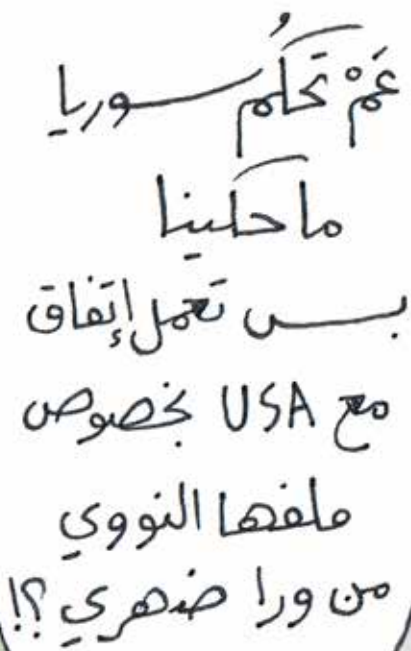 عَمْ تُحكُم سوريا
ما حكينا
بس تعمل إتفاق
مع USA بخصوص
ملفها النووي
من ورا ضهري ؟!